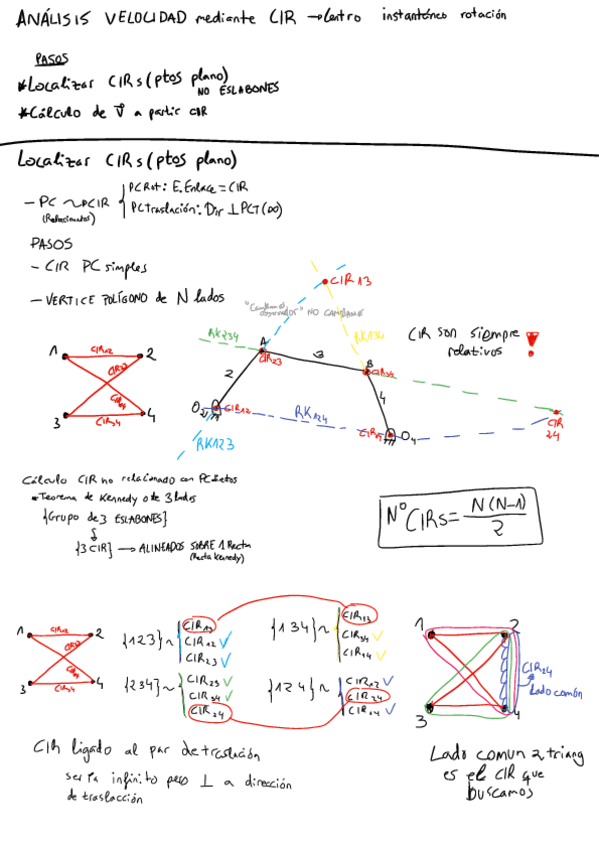 ANÁLISIS VELOCIDAD mediante CIR → Centro instantáneo rotación
PASOS
*Localizar CIRs (ptos plano)
NO ESLABONES
*Cálculo de V a partir CIR
Localizar CIRs (ptos plano)
- PC ~ CIR
(Relacionados)
PCRot: E. Enlace = CIR
PCTraslación: Dir ⊥ PCT (∞)
PASOS
- CIR PC simples
- VERTICE POLÍGONO DE N lados
CIR13
"Cambiamos observador" NO CAMBIAMOS
RK234
RK134
A
CIR23
3
B
CIR34
CIR son siempre
relativos !
1
CIR12
2
CIR23
CIR14
3
CIR34
4
2
4
O2
CIR12
RK124
CIR14
O4
CIR
24
RK123
Cálculo CIR no relacionado con PC directos
*Teorema de Kennedy o de 3 lados
{Grupo de 3 ESLABONES}
{3 CIR} → ALINEADOS SOBRE 1 Recta
(Recta Kennedy)
Nº CIRs = N(N-1)
2
1
CIR12
2
CIR23
CIR14
3
CIR34
4
{123} ~
CIR13
CIR12 ✓
CIR23 ✓
{134} ~
CIR13
CIR34 ✓
CIR14 ✓
{234} ~
CIR23 ✓
CIR34 ✓
CIR24
{124} ~
CIR12 ✓
CIR24
CIR14 ✓
1
2
CIR24
Lado común
3
4
CIR ligado al par de traslación
sería infinito pero ⊥ a dirección
de traslacción
Lado comun 2 triang
es el CIR que
buscamos